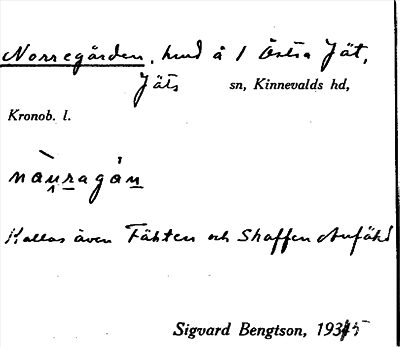 Norregården, hmd å 1 Östra Jät,
Jäts sn, Kinnevalds hd,
Kronob. l.
nàu̯ragån
Kallas även Fähten och Skaffen Anfäkt
Sigvard Bengtson, 1935